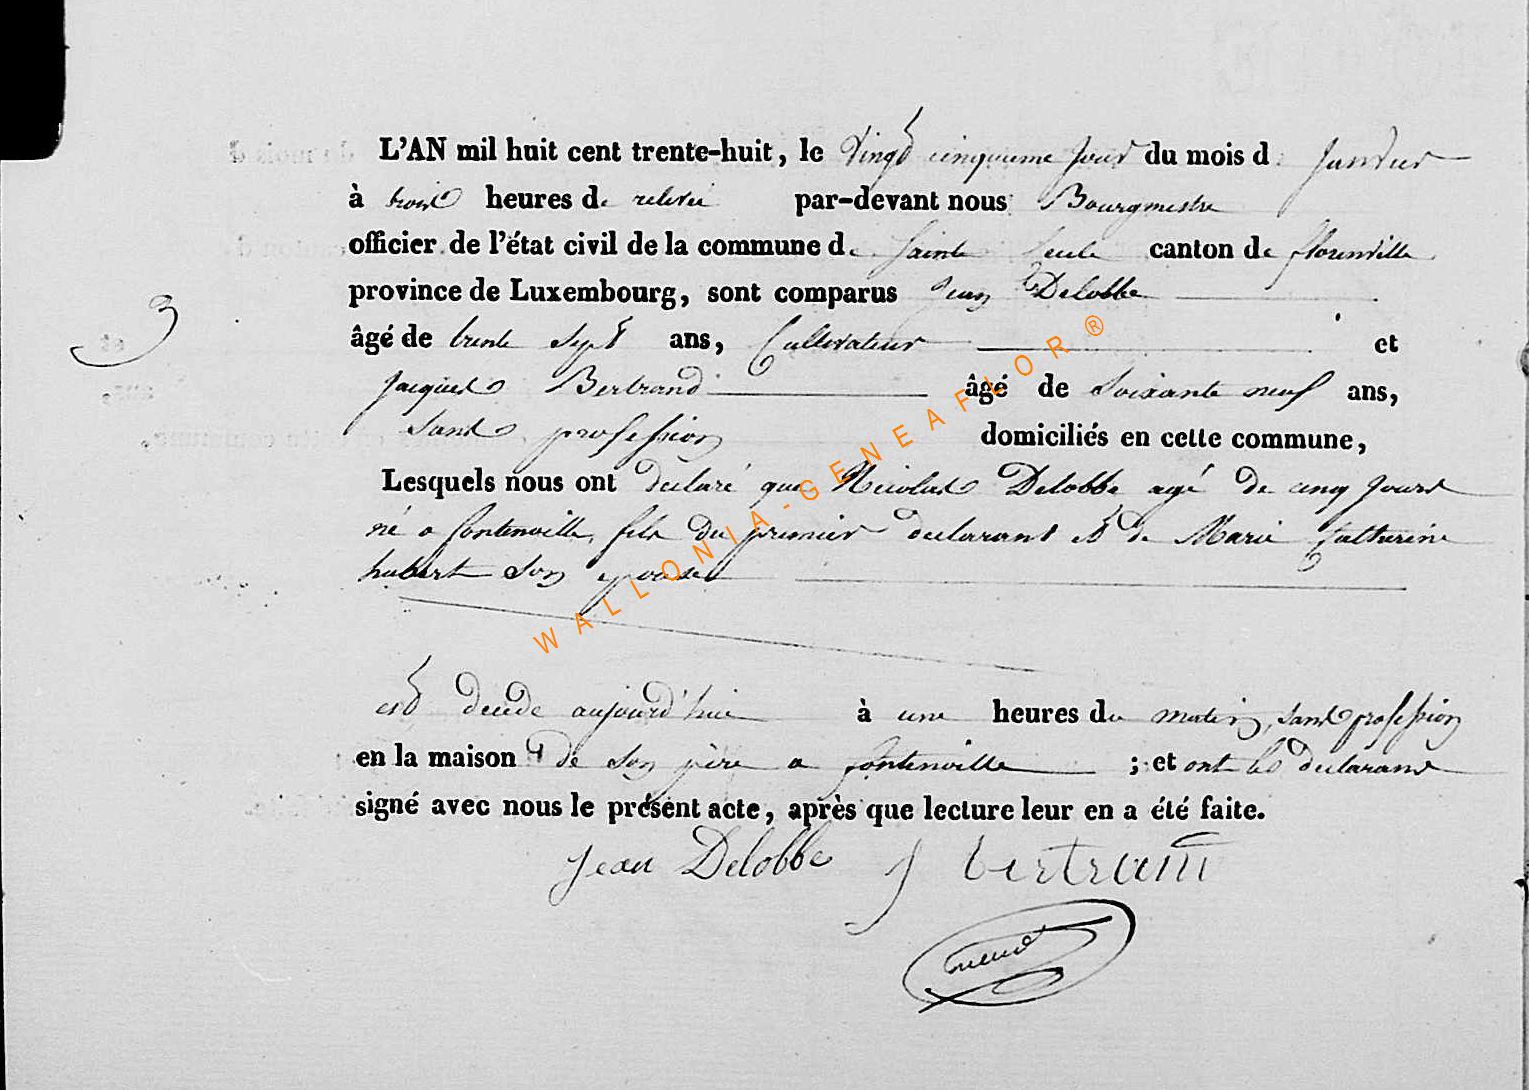 L'AN mil huit cent trente-huit, le vingt cinquieme jour du mois d Janvier
à trois heures de relevée par-devant nous Bourgmestre
officier de l'état civil de la commune de Sainte Cecile canton de florenville
province de Luxembourg, sont comparus Jean Delobbe
3
âgé de trente sept ans, Cultivateur et
Jacques Bertrand âgé de Soixante neuf ans,
Sans profession domiciliés en cette commune,
Lesquels nous ont declaré que Nicolas Delobbe agé de cinq jours
né a fontenoille, fils du premier declarant et de Marie Catherine
hubert son epouse
est decede aujourd'hui à une heures du matin, sans profession
en la maison de son père a fontenoille ; et ont les declarans
signé avec nous le présent acte, après que lecture leur en a été faite.
Jean Delobbe J bertrand
WALLONIA-GENEAFLOR®